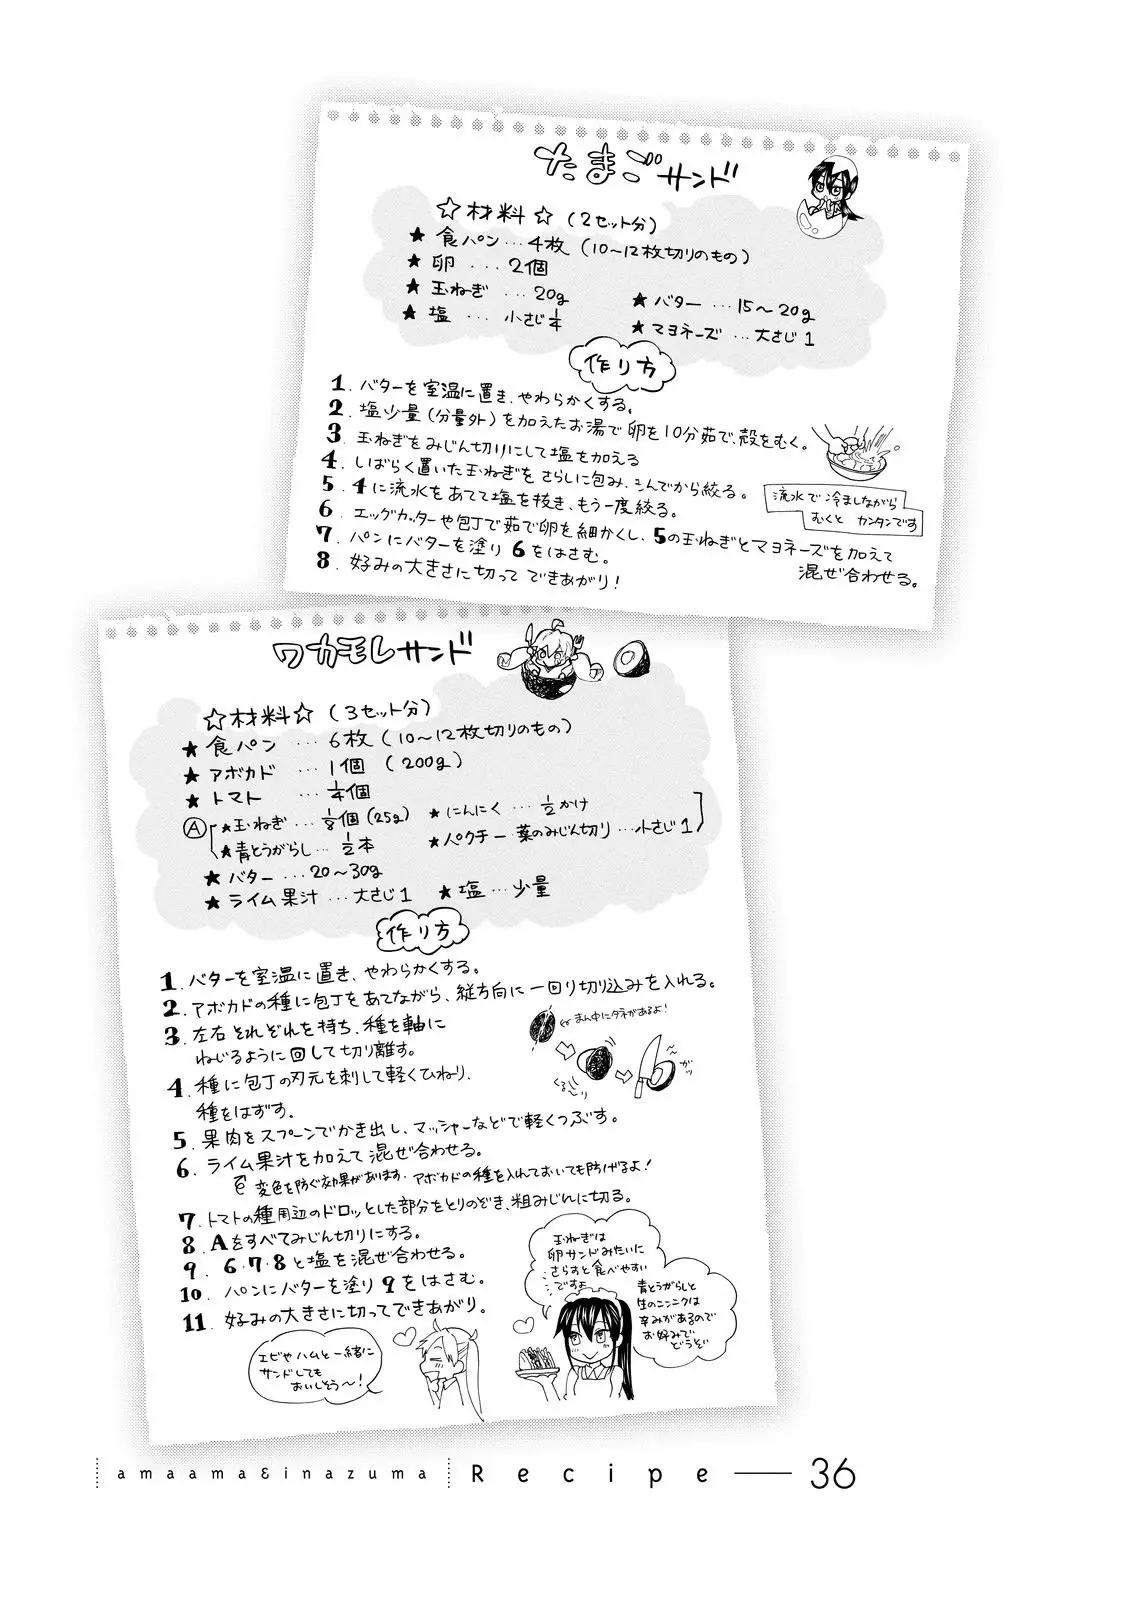 たまごサンド
☆材料☆（2セット分）
★食パン…4枚（10〜12枚切りのもの）
★卵 …2個
★玉ねぎ …20g
★塩 … 小さじ1/4
★バター …15〜20g
★マヨネーズ …大さじ1
作り方
1. バターを室温に置き、やわらかくする。
2. 塩少量（分量外）を加えたお湯で卵を10分茹で、殻をむく。
3. 玉ねぎをみじん切りにして塩を加える
4. しばらく置いた玉ねぎをさらしに包み、もんでから絞る。
5. 4に流水をあてて塩を抜き、もう一度絞る。
流水で冷ましながら
むくと カンタンです
6. エッグカッターや包丁で茹で卵を細かくし、5の玉ねぎとマヨネーズを加えて
混ぜ合わせる。
7. パンにバターを塗り6をはさむ。
8. 好みの大きさに切って できあがり！
ワカモレサンド
☆材料☆（3セット分）
★食パン …6枚（10〜12枚切りのもの）
★アボカド …1個（200g）
★トマト …1/4個
Ⓐ
★玉ねぎ…1/8個（25g）
★にんにく …1/2かけ
★青とうがらし…1/2本
★パクチー 葉のみじん切り…小さじ1
★バター …20〜30g
★ライム果汁 …大さじ1 ★塩…少量
作り方
1. バターを室温に置き、やわらかくする。
2. アボカドの種に包丁をあてながら、縦方向に一回り切り込みを入れる。
3. 左右それぞれを持ち、種を軸に
ねじるように回して切り離す。
まん中にタネがあるよ！
くるーり
ガッ
4. 種に包丁の刃元を刺して軽くひねり、
種をはずす。
5. 果肉をスプーンでかき出し、マッシャーなどで軽くつぶす。
6. ライム果汁を加えて混ぜ合わせる。
変色を防ぐ効果があります。アボカドの種を入れておいても防げるよ！
7. トマトの種周辺のドロッとした部分をとりのぞき、粗みじんに切る。
8. Aをすべてみじん切りにする。
9. 6・7・8と塩を混ぜ合わせる。
10. パンにバターを塗り9をはさむ。
11. 好みの大きさに切ってできあがり。
玉ねぎは
卵サンドみたいに
さらすと食べやすい
ですよ
青とうがらしと
生のニンニクは
辛みがあるので
お好みで
どうぞ
エビやハムと一緒に
サンドしても
おいしそう〜！
amaama&inazuma Recipe — 36